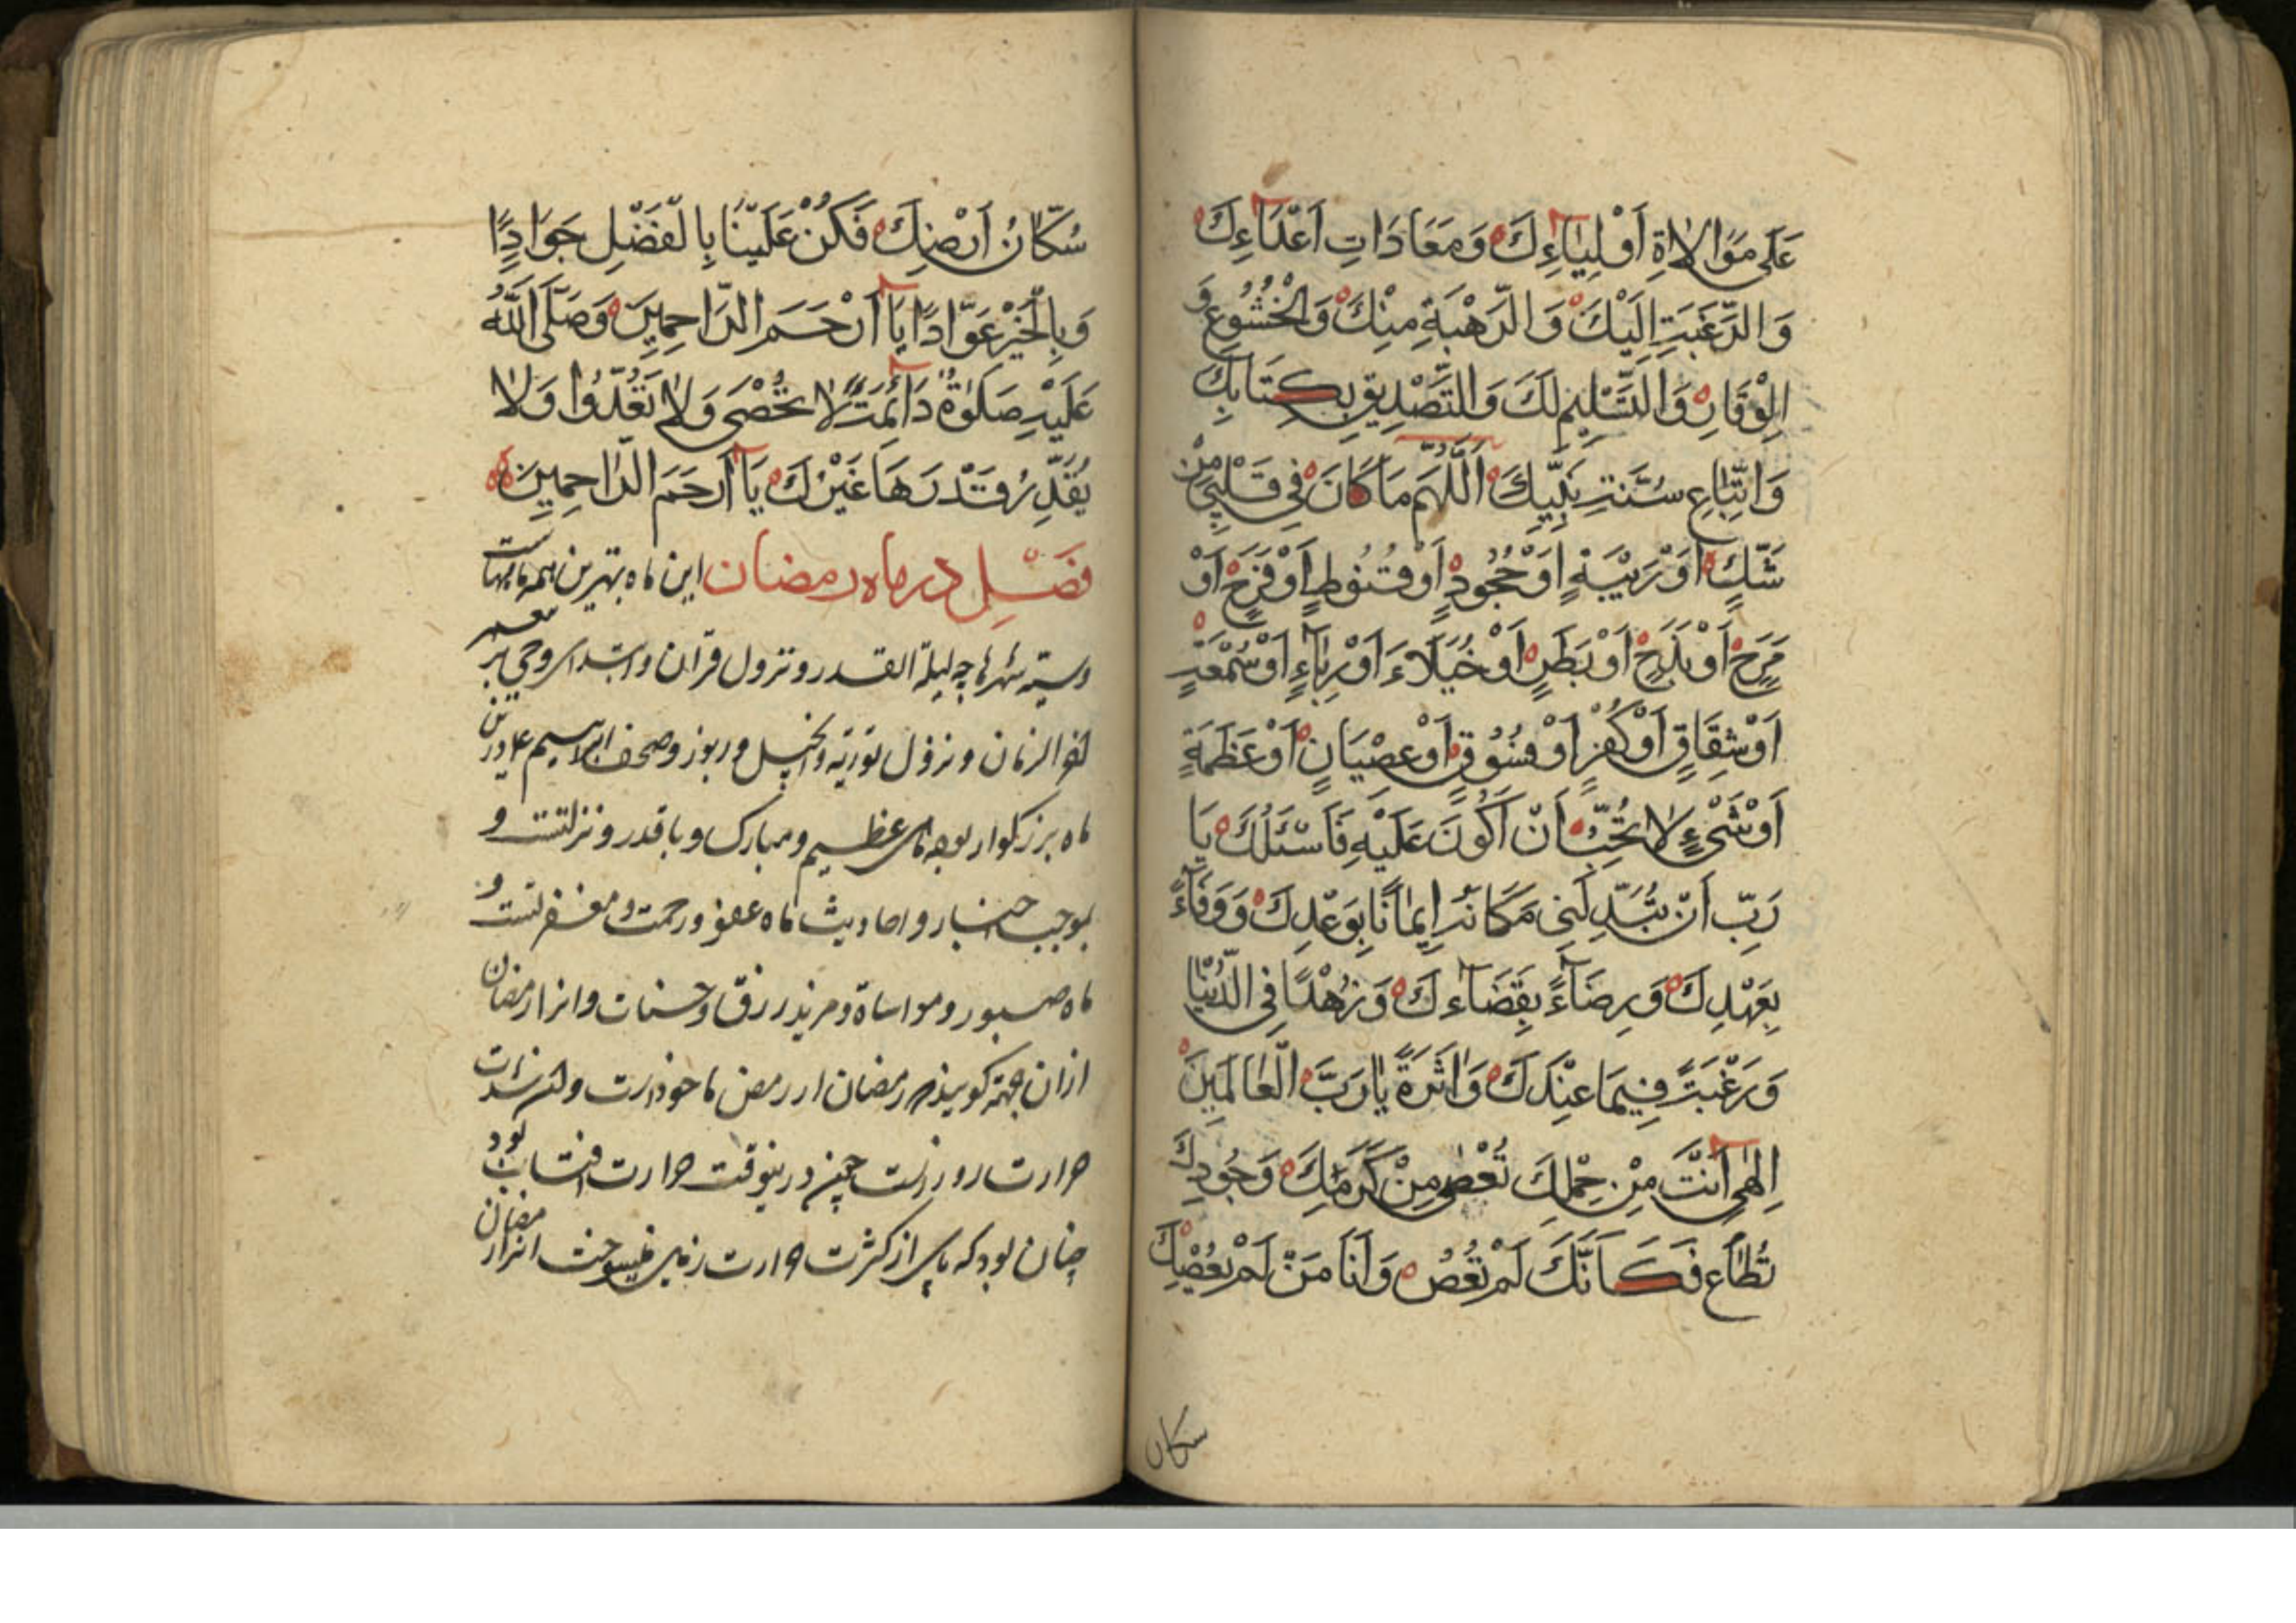 عَلَى مَوَالَاةِ أَوْلِيَاءِكَ وَمَعَادَاتِ أَعْدَاءِكَ
وَالرَّغْبَتِ إِلَيْكَ وَالرَّهْبَةِ مِنْكَ وَالْخُشُوعِ وَ
الْوَقَارِ وَالتَّسْلِيمِ لَكَ وَالتَّصْدِيقِ بِكِتَابِكَ
وَاتِّبَاعِ سُنَّتِ نَبِيِّكَ اَللّٰهُمَّ مَا كَانَ فِي قَلْبِي مِنْ
شَكٍّ أَوْ رَيْبَةٍ أَوْ جُحُودٍ أَوْ قُنُوطٍ أَوْ فَرَحٍ أَوْ
مَرَحٍ أَوْ بَذَخٍ أَوْ بَطَرٍ أَوْ خُيَلَاءَ أَوْ رِيَآءٍ أَوْ سُمْعَتٍ
أَوْ شِقَاقٍ أَوْ كُفْرٍ أَوْ فُسُوقٍ أَوْ عِصْيَانٍ أَوْ عَظَمَةٍ
أَوْ شَيْءٍ لَا تُحِبُّ أَنْ أَكُونَ عَلَيْهِ فَاَسْئَلُكَ يَا
رَبِّ أَنْ تُبَدِّلَنِي مَكَانَهُ إِيمَانًا بِوَعْدِكَ وَوَفَآءً
بِعَهْدِكَ وَرِضَآءً بِقَضَآءِكَ وَزُهْدًا فِي الدُّنْيَا
وَرَغْبَتً فِيمَا عِنْدَكَ وَاَثَرَةً يَا رَبَّ الْعَالَمِينَ
إِلٰهِي أَنْتَ مِنْ حِلْمِكَ تُعْصٰى مِنْ كَرَمِكَ وَجُودِكَ
تُطَاع فَكَاَنَّكَ لَمْ تُعْصَ وَاَنَا مَنْ لَمْ يَعْصِكَ
سكان
سُكَّانُ أَرْضِكَ فَكُنْ عَلَيْنَا بِالْفَضْلِ جَوَادًا
وَبِالْخَيْرِ عَوَّادًا يَا أَرْحَمَ الرَّاحِمِينَ وَصَلَّى اللّٰهُ
عَلَيْهِ صَلٰوةً دَائِمَتً لَا تُحْصٰى وَلَا تُعَدُّوا وَلَا
يُقَدِّرُ قَدْرَهَا غَيْرُكَ يَا أَرْحَمَ الرَّاحِمِينَ
فَصْلِ در ماه رمضان این ماه بهترین همه ماههاست
و سیّد شهرها چه لیلة القدر و نزول قرآن و ابتداء وحی بر پیغمبر
آخر الزمان و نزول توریة و انجیل و زبور و صحف ابراهیم ع در این
ماه بزرکوار بوده ماهی عظیم و مبارک و با قدر و منزلتست و
بموجب اخبار و احادیث ماه عفو و رحمت و مغفرتست و
ماه صبور و مواساة و مزید رزق و حسنات و انرا رمضان
ازان جهة کویند رمضان از رمض ماخوذست و آن شدّت
حرارت روزست چون در ینوقت حرارت افتاب بود
چنان بود که پای از کثرت حرارت زمین میسوخت انرا رمضان